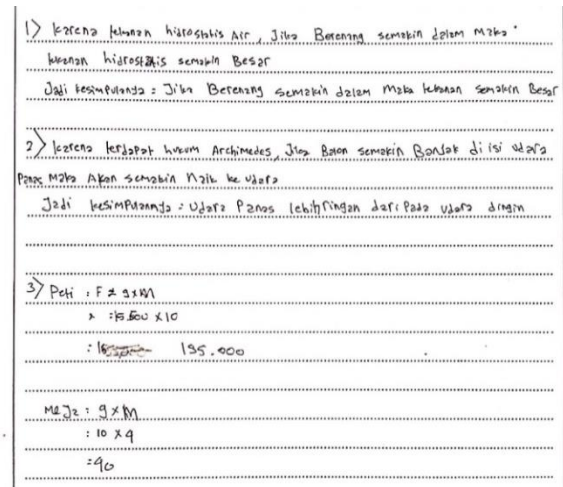 1) Karena tekanan hidrostatis Air, Jika Berenang semakin dalam Maka
tekanan hidrostatis semakin Besar
Jadi kesimpulannya : Jika Berenang semakin dalam Maka tekanan semakin Besar
2) Karena terdapat hukum Archimedes, Jika Balon semakin Banyak di isi udara
Panas Maka Akan semakin Naik ke udara
Jadi kesimpulannya : Udara Panas lebih ringan dari Pada udara dingin
3) Peti : F = g x M
: 15.500 x 10
: 195.000
Meja : g x M
: 10 x 9
: 90